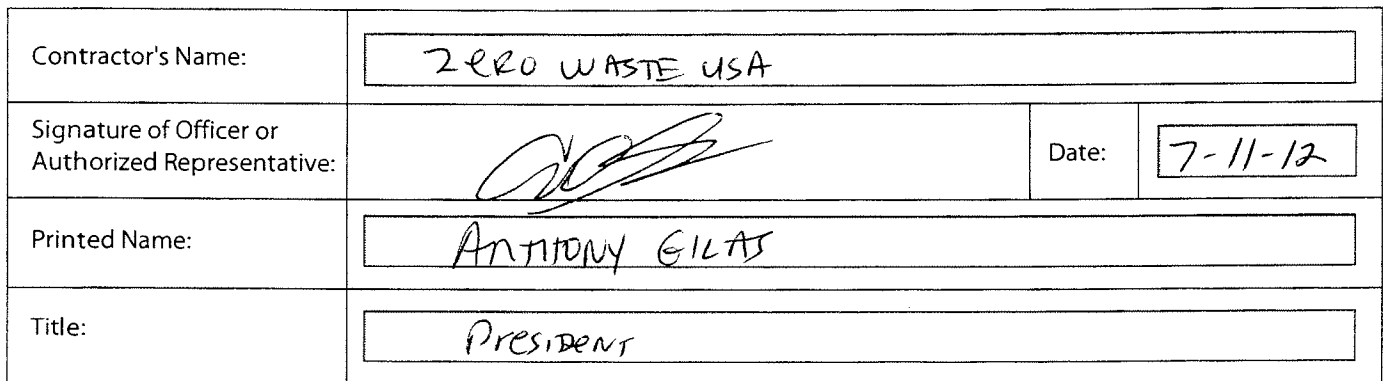 Contractor's Name: ZeRO WASTE USA
Signature of Officer or
Authorized Representative:
Date: 7-11-12
Printed Name: AnTHONY EILAS
Title: PresIDeNT